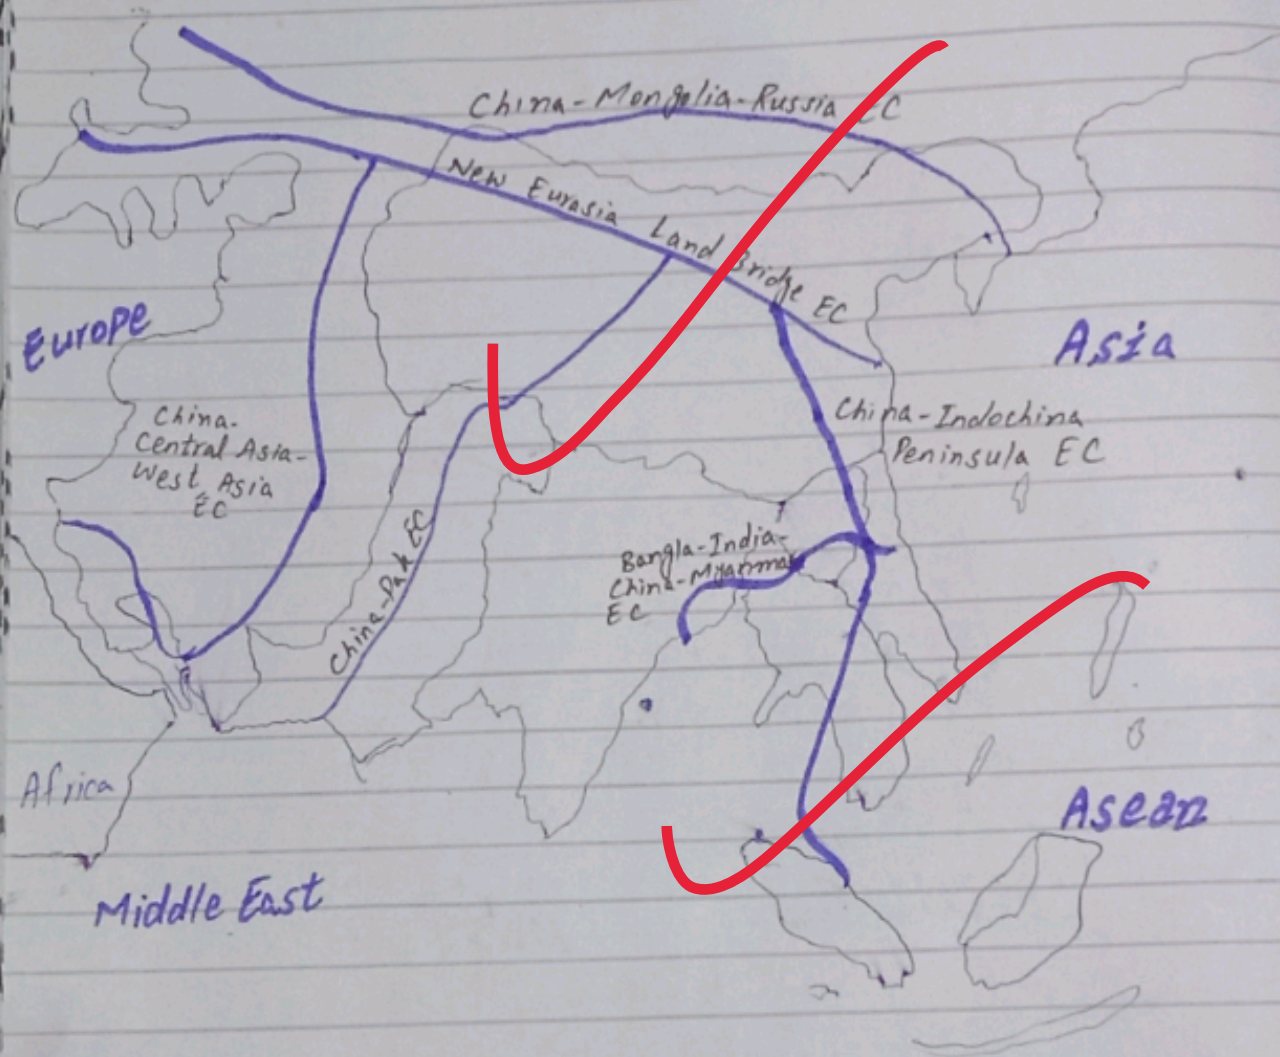 China-Mongolia-Russia EC
New Eurasia Land Bridge EC
Europe
Asia
China-
Central Asia-
West Asia
EC
China-Indochina
Peninsula EC
China-Pak EC
Bangla-India-
China-Myanmar
EC
Africa
Asean
Middle East